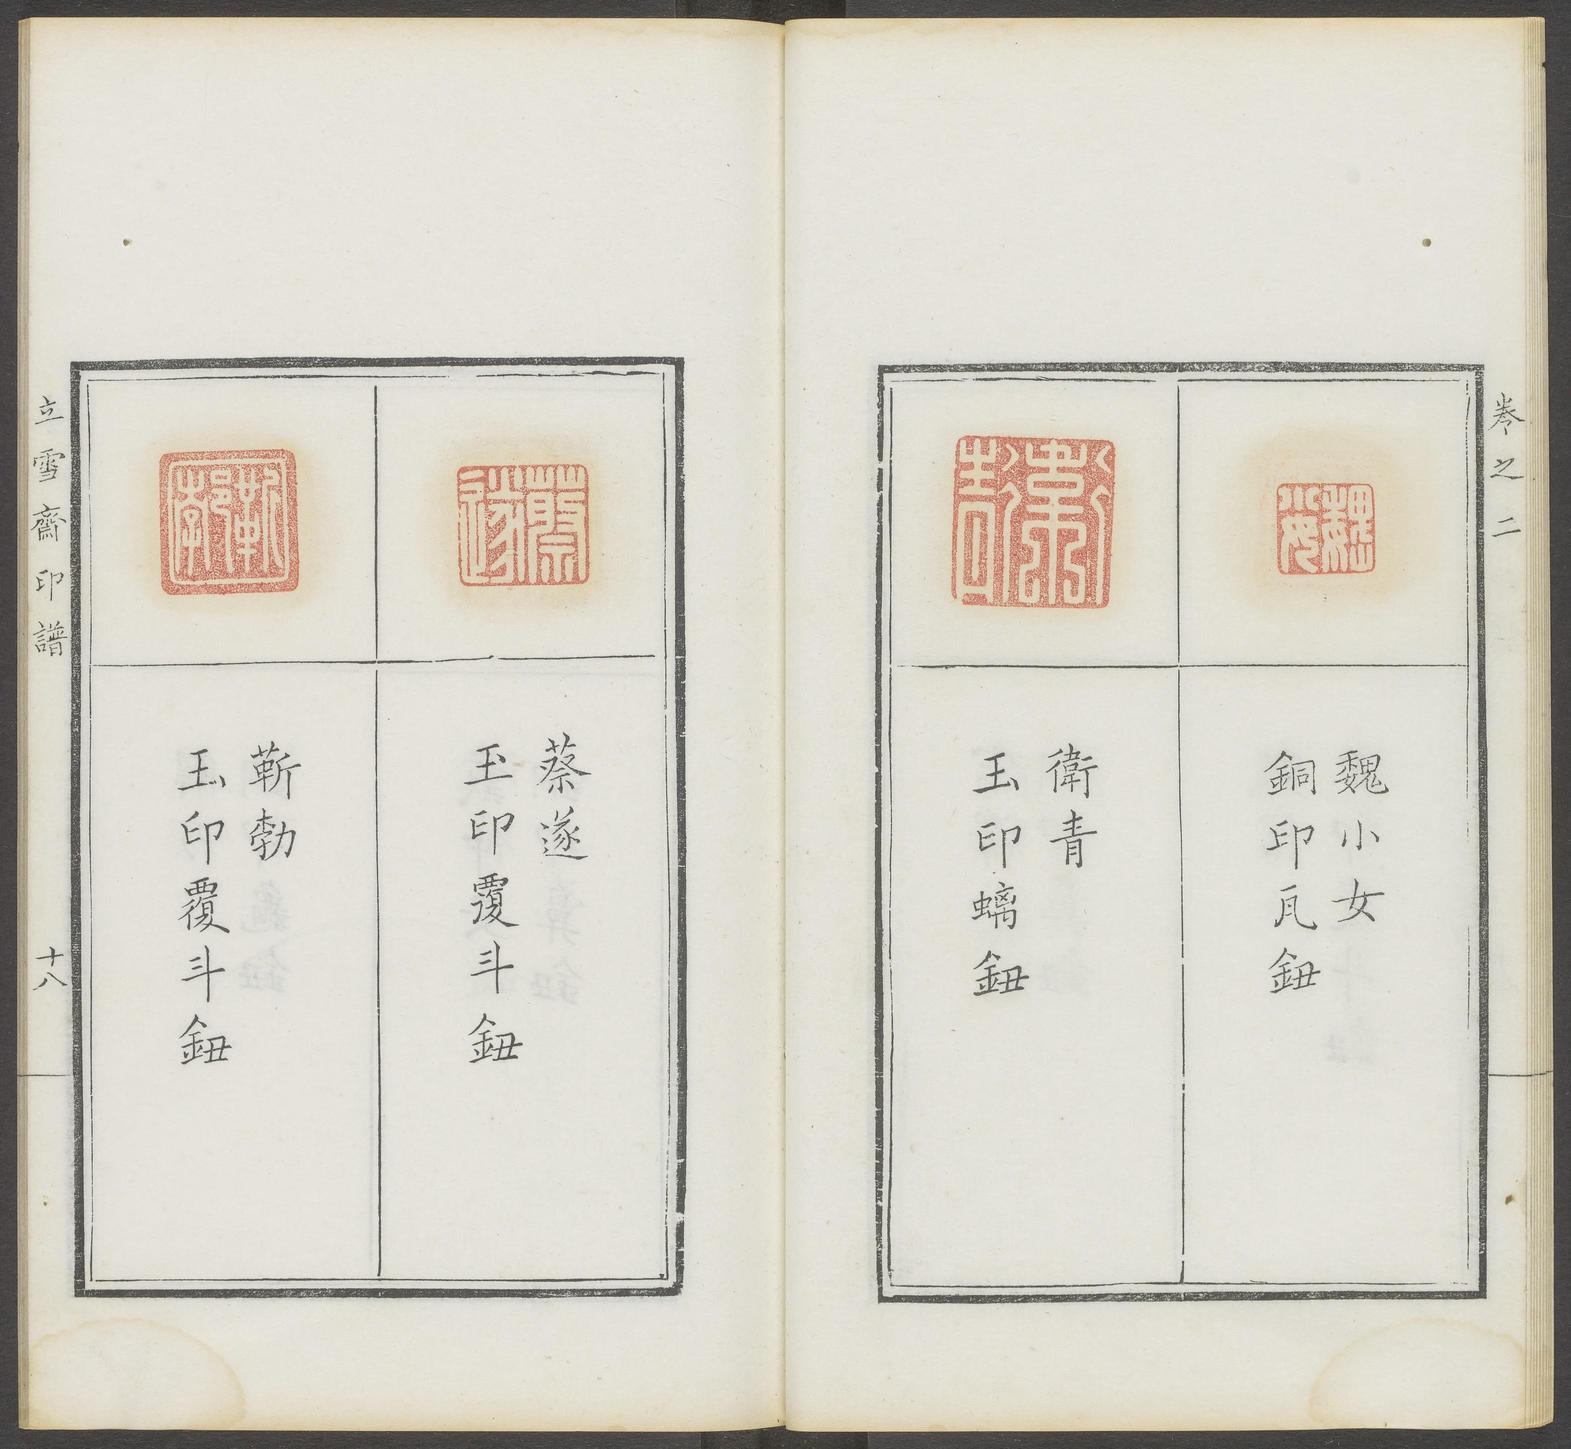 卷之二
魏小女
銅印瓦鈕
衛青
玉印螭鈕
蔡遂
玉印覆斗鈕
靳勃
玉印覆斗鈕
立雪齋印譜
十八